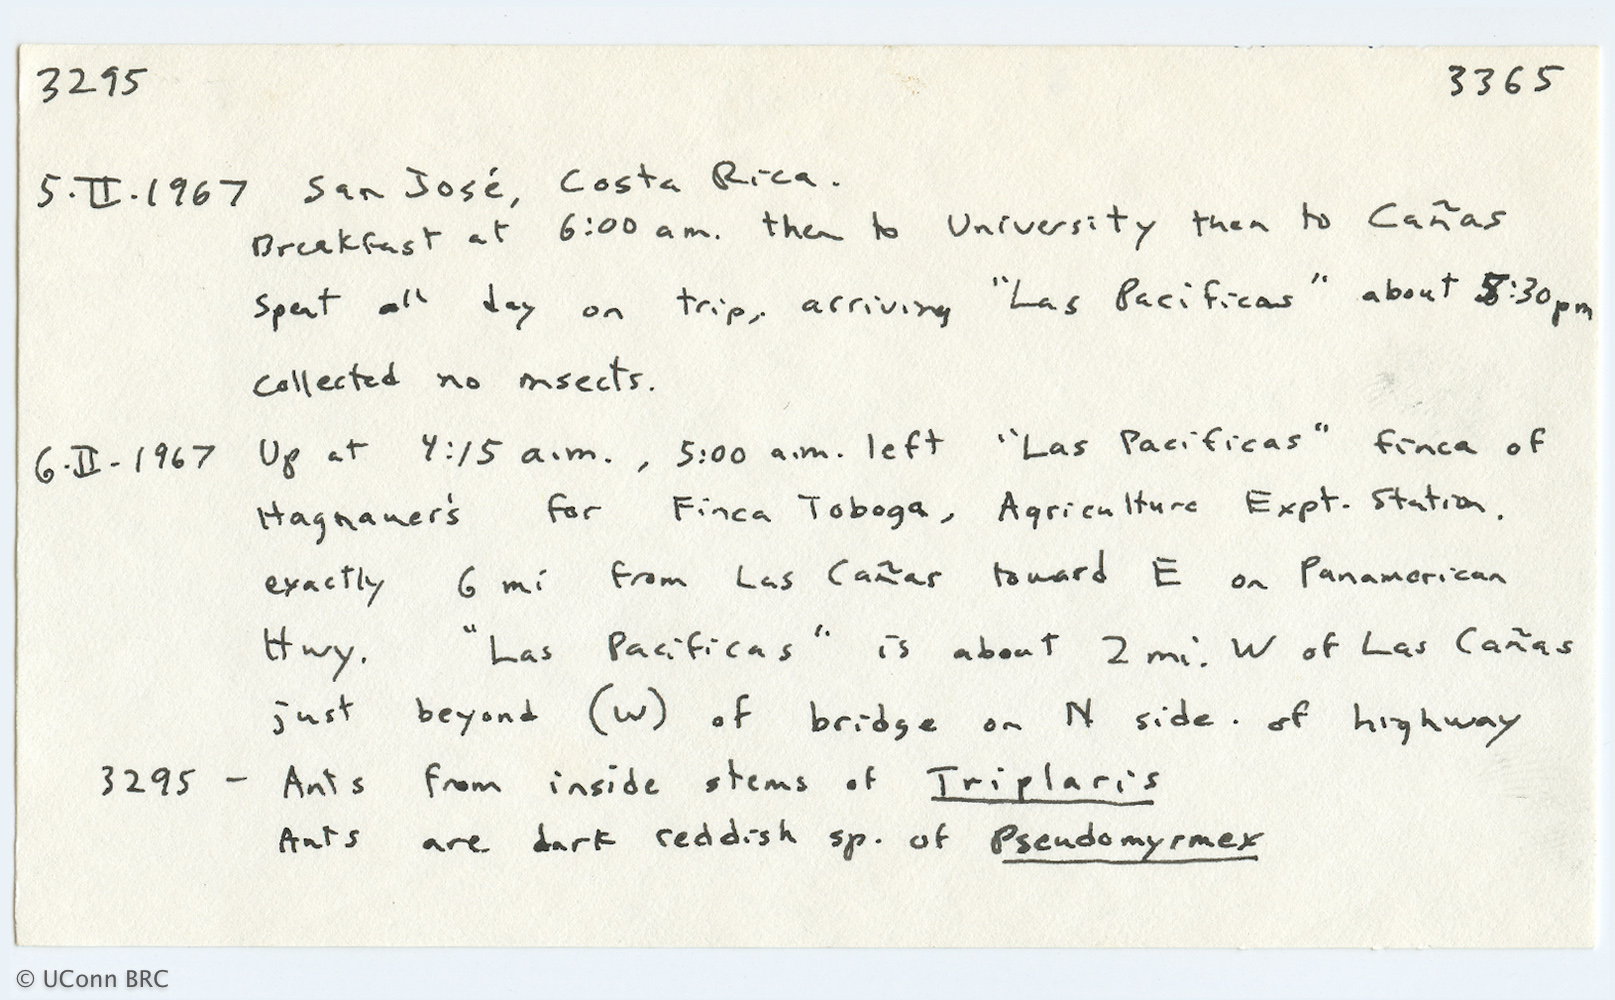 3295 3365
5.II.1967 San José, Costa Rica.
Breakfast at 6:00 am. then to University then to Cañas
spent all day on trip, arriving "Las Pacificas" about 5:30pm
collected no insects.
6.II-1967 Up at 4:15 a.m., 5:00 a.m. left "Las Pacificas" finca of
Hagnauer's for Finca Toboga, Agriculture Expt. Station.
exactly 6 mi from Las Cañas toward E on Panamerican
Hwy. "Las Pacificas" is about 2 mi. W of Las Cañas
just beyond (W) of bridge on N side. of highway
3295 - Ants from inside stems of Triplaris
Ants are dark reddish sp. of Pseudomyrmex
© UConn BRC